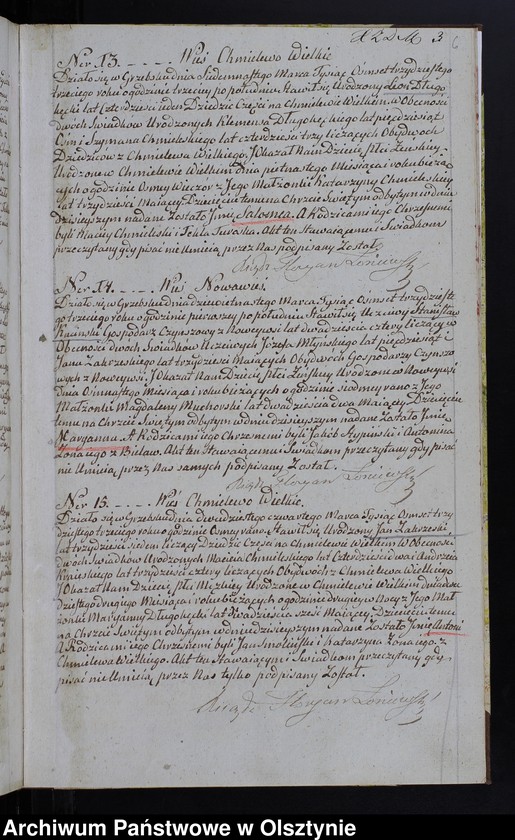 3
Nr 13. - - - - Wieś Chmielewo Wielkie
Działo się w Grzebsku dnia Siedemnastego Marca Tysiąc Osmset trzydziestego
trzeciego roku o godzinie trzeciey po południu Stawił się Urodzony Leon Długo-
kęcki lat Czterdzieści jeden Dziedzic Części na Chmielewie Wielkim, w Obecności
dwóch Świadków Urodzonych Klemensa Długokęckiego lat pięcdziesiąt
Osm i Szymana Chmielińskiego lat czterdzieści trzy liczących Obydwoch
Dziedziców z Chmielewa Wielkiego, i Okazał Nam Dziecie płci Żeńskiey
Urodzone w Chmielewie Wielkim dnia pietnastego Miesiąca i roku bieżą-
cych o godzinie Osmey Wieczor z Jego Małżonki Katarzyny Chmielińskiey
lat trzydzieści Maiącey Dziecieciu temu na Chrzcie Świętym odbytym w dniu
dzisieyszym nadane Zostało Imie Salomea. A Rodzicami iego Chrzesnemi
byli Maciey Chmieliński i Tekla Suwalska. Akt ten Stawaiącemu i Świadkom
przeczytany gdy pisać nie Umieią przez Nas podpisany Został.
Xiądz Floryan
Nr 14. - - - - Wieś Nowawieś
Działo się w Grzebsku dnia dziewietnastego Marca Tysiąc Osmset trzydzieste-
go trzeciego roku o godzinie pierwszey po południu Stawił się Uczciwy Stanisław
Gospodarz Czynszowy z Noweywsi lat dwadzieścia cztery liczący w
Obecności dwoch Świadków Uczciwych Józefa Młyńskiego lat piędziesiąt i
Jana Zakrzeskiego lat trzydzieści Maiących Obydwoch Gospodarzy Czynszo-
wych z Noweywsi, i Okazał Nam Dziecie płci Żeńskiey Urodzone w Noweywsi
Dnia Osmnastego Miesiąca i roku bieżących o godzinie siodmey rano z Jego
Małżonki Magdaleny Muchowski lat dwadzieścia dwa Maiącey Dziecieciu
temu na Chrzcie Świętym odbytym w dniu dzisieyszym nadane Zostało Imie
Maryanna. A Rodzicami iego Chrzesnemi byli Jakób i Antonina
Żona iego z Bielaw. Akt ten Stawaiącemu i Świadkom przeczytany gdy pisać
nie Umieią przez Nas samych podpisany Został.
Xiądz Floryan
Nr 15. - - - - Wieś Chmielewo Wielkie
Działo się w Grzebsku dnia dwudziestego czwartego Marca Tysiąc Osmset trzy-
dziestego trzeciego roku o godzinie Osmey rano Stawił się Urodzony Jan Zakrzeski
lat trzydzieści siedem liczący Dziedzic Części na Chmielewie Wielkim w Obecności
dwoch Świadków Urodzonych Macieia Chmielińskiego lat Czterdzieści dwa i Andrzeia
lat trzydzieści cztery liczących Obydwoch z Chmielewa Wielkiego
i Okazał Nam Dziecie płci Męzkiey Urodzone w Chmielewie Wielkim dnia dwu-
dziestego drugiego Miesiąca i roku bieżących o godzinie drugiey w Nocy z Jego Mał-
żonki Maryanny Długokęcki lat dwadzieścia sześć Maiącey Dziecieciu temu
na Chrzcie Świętym odbytym w dniu dzisieyszym nadane Zostało Imie Antoni
A Rodzicami iego Chrzesnemi byli Jan Smoliński i Katarzyna Żona iego z
Chmielewa Wielkiego. Akt ten Stawaiącym i Świadkom przeczytany gdy
pisać nie Umieią przez Nas tylko podpisany Został.
Xiądz Floryan
Archiwum Państwowe w Olsztynie